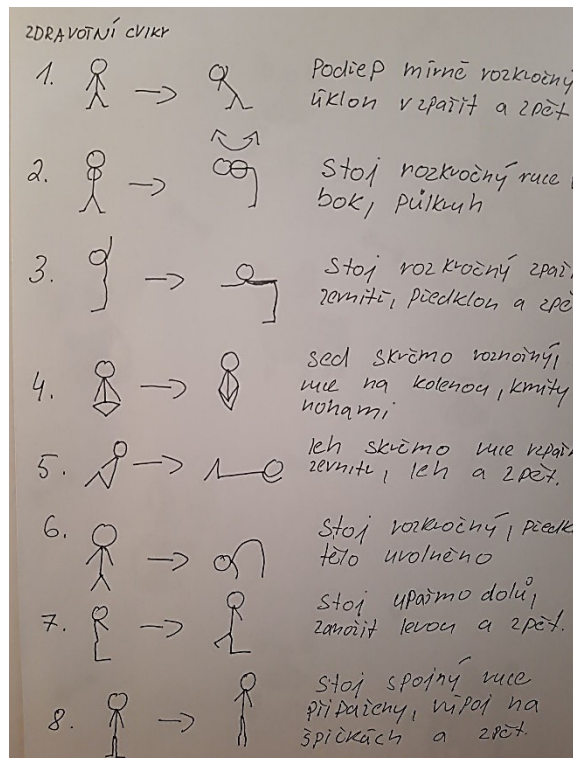 ZDRAVOTNÍ CVIKY
1. Podřep mírně rozkročný
úklon vzpažit a zpět
2. Stoj rozkročný ruce
bok, půlkruh
3. Stoj rozkročný
zevnitř, předklon a zpě
4. sed skrčmo roznožný,
ruce na kolenou, kmity
nohami
5. leh skrčmo ruce vzpaž
zevnitř, leh a zpět.
6. Stoj rozkročný, předk
tělo uvolněno
7. Stoj upažmo dolů,
zanožit levou a zpět.
8. Stoj spojný ruce
připaženy, výpoj na
špičkách a zpět.